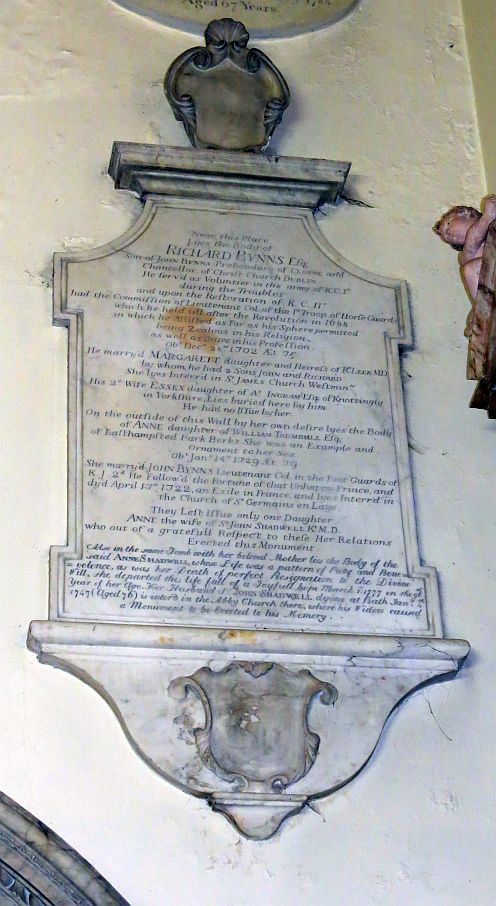 Aged 67 Years.
Near this Place
Lyes the Body of
RICHARD BYNNS Esq.
Son of JOHN BYNNS Prebendary of CLOYNE and
Chancellor of Christ Church DUBLIN
He serv'd as Voluntier in the army of K.C.Ist
during the Troubles
and upon the Restoration of K. C. IId
had the Commission of Lieutenant Col. of the Ist Troop of Horse Guards
which he held till after the Revolution in 1688
in which he Assisted as Far as his Sphere permitted
being Zealous in his Religion
as well as Brave in his Profession.
Obt Decr 1702 Æt 75
He marry'd MARGARETT daughter and Heiress of R. LEEK MD
by whom he had 2 Sons JOHN and RICHARD
She lyes Interr'd in St JAMES Church Westminr
His 2d Wife ESSEX daughter of Ar INGRAM Esq. of Knottingly
in Yorkshire, Lies buried here by him
He had no Issue by her.
On the outside of this Wall by her own desire lyes the Body
of ANNE daughter of WILLIAM TRUMBULL Esq.
of Easthampsted Park Berks She was an Example and
Ornament to her Sex
Obt Jany 14th 1729 Æt 79
She marry'd JOHN BYNNS Lieutenant Col. in the Foot Guards of
K. J. 2d He Follow'd the Fortune of that Unhappy Prince, and
dy'd April 1722, an Exile in France, and lyes Interr'd in
the Church of St Germains en Laye
They Left Issue only one Daughter
ANNE the wife of Sr JOHN SHADWELL Kt M.D.
who out of a gratefull Respect to these Her Relations
Erected this Monument
Also in the same Tomb with her beloved Mother lies the Body of the
said ANNE SHADWELL, whose Life was a pattern of Piety and Bene=
=volence, as was her Death of perfect Resignation to the Divine
Will, she departed this life full of a Joyfull hope March 1777 on the
year of her Age. Her Husband Sr JOHN SHADWELL dying at Bath Jany
1747 (Aged 76) is inter'd in the Abby Church there, where his Widow caused
a Monument to be Erected to his Memory.